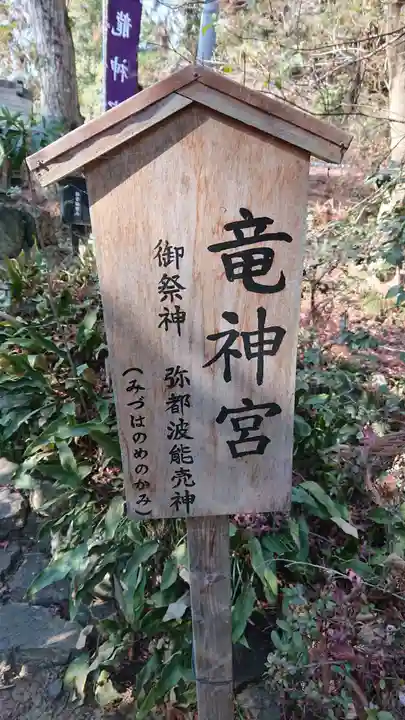 竜神宮
御祭神 弥都波能売神
(みづはのめのかみ)
龍神